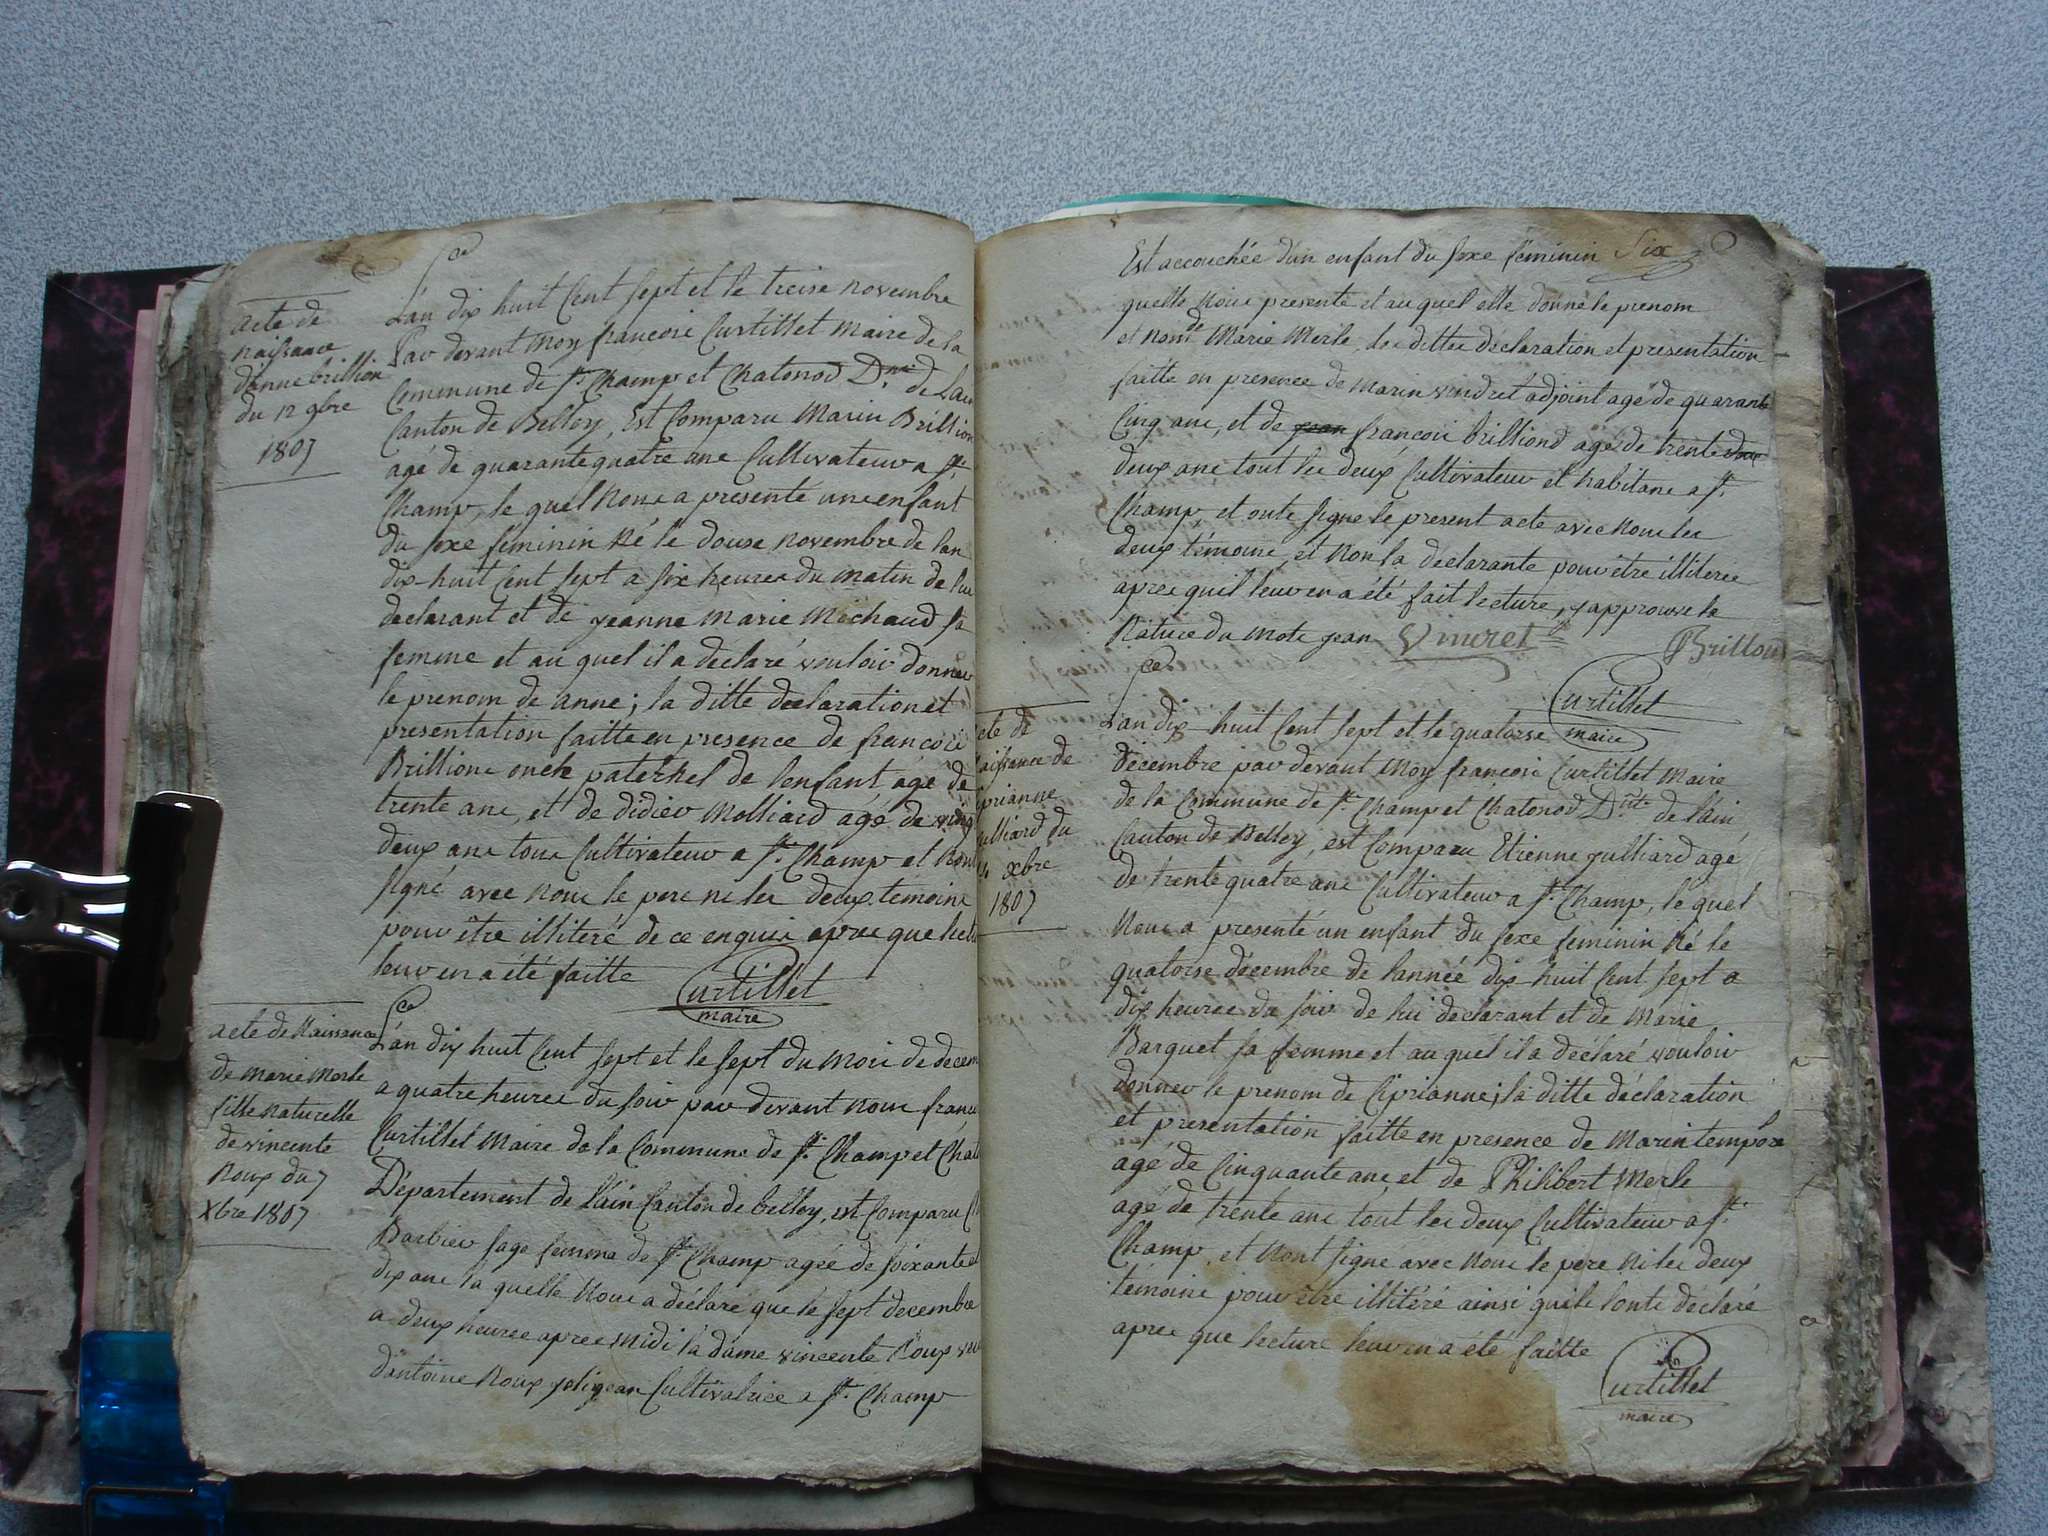 acte de
naissance
d'anne brillion
du 12 9bre
1807
L'an dix huit Cent sept et le treise novembre
Par devant moy francois Curtillet maire de la
Commune de St. Champ et Chatonod D.nt de Lain
Canton de Belley, Est Comparu Marin Brillion
agé de quarante quatre ans Cultivateur a St.
Champ, le quel Nous a presenté une enfant
du sexe feminin Né le douse novembre de lan
dix huit Cent sept a six heures du matin de lui
declarant et de jeanne marie Michaud sa
femme et au quel il a déclaré vouloir donner
le prenom de anne; la ditte declaration et
presentation faitte en presence de francois
Brillion oncle paternel de lenfant agé de
trente ans, et de didier Molliard agé de vingt
deux ans tous Cultivateur a St. Champ et Nont
signé avec nous le pere ni les deux temoins
pour être illiteré de ce enquis apres que lecture
leur en a été faitte
Curtillet
maire
acte de Naissance
de marie Merle
fille naturelle
de vincente
Roux du 7
Xbre 1807
L'an dix huit Cent sept et le sept du mois de decem
a quatre heures du soir par devant nous francois
Curtillet Maire de la Commune de St. Champ et Chat
Département de l'ain Canton de belley, est Comparu
Barbier sage femme de St. Champ agée de soixante et
dix ans la quelle Nous a déclaré que le sept decembre
a deux heures apres midi la dame vincente Roux
d'antoine Roux Cultivatrice a St. Champ
Est accouchée d'un enfant du sexe féminin Six
quelle nous presente et au quel elle donne le prenom
et nom de Marie Merle, les dittes déclaration et presentation
faitte en presence de marin vindret adjoint agé de quarante
Cinq ans, et de jean françois brilliond agé de trente deux
deux ans tout les deux Cultivateur et habitans a St.
Champ et onts signé le present acte avec nous les
deux témoins, et Non la declarante pour être illiterée
apres quil leur en a été fait lecture, japprouve la
Rature du mots jean
Vinuret
Brillon
Curtillet
maire
cte de
aissance de
iprianne
ulliard du
14 xbre
1807
L'an dix huit Cent sept et le quatorse
décembre par devant Moy francois Curtillet Maire
de la Commune de St. Champ et Chatonod D.nt de lain
Canton de Belley, est Comparu Etienne julliard agé
de trente quatre ans Cultivateur a St. Champ, le quel
Nous a presenté un enfant du sexe feminin Né le
quatorse décembre de lannée dix huit Cent sept a
dix heures du soir de lui declarant et de Marie
Barquet sa femme et au quel il a déclaré vouloir
donner le prenom de Ciprianne; la ditte déclaration
et presentation faitte en presence de Marin temporal
agé de Cinquante ans et de Philibert Merle
agé de trente ans tout les deux Cultivateur a St.
Champ, et Nont signe avec Nous le pere Ni les deux
témoins pour être illitéré ainsi quils lonts declaré
apres que lecture leur en a été faitte
Curtillet
maire